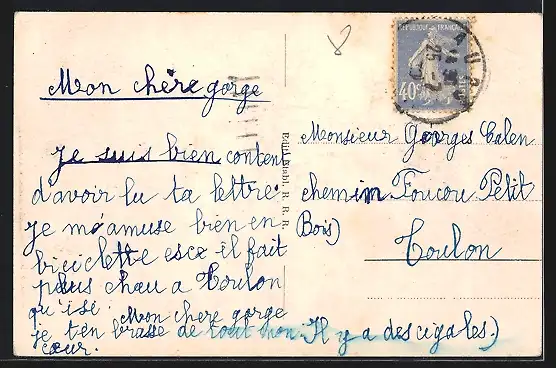 Mon chère gorge
Je suis bien content
d'avoir lu ta lettre.
Je m'éamuse bien en
biciclette esce-il fait
plus chau a Toulon
qu'isi. Mon chere gorge
je t'en brasse de tout mon
cœur.
(Il y a des cigales.)
Edit. Etabl. R. R. R.
RÉPUBLIQUE FRANÇAISE
40c
Monsieur Georges Calen
chemin Foucou Petit
Bois)
Toulon